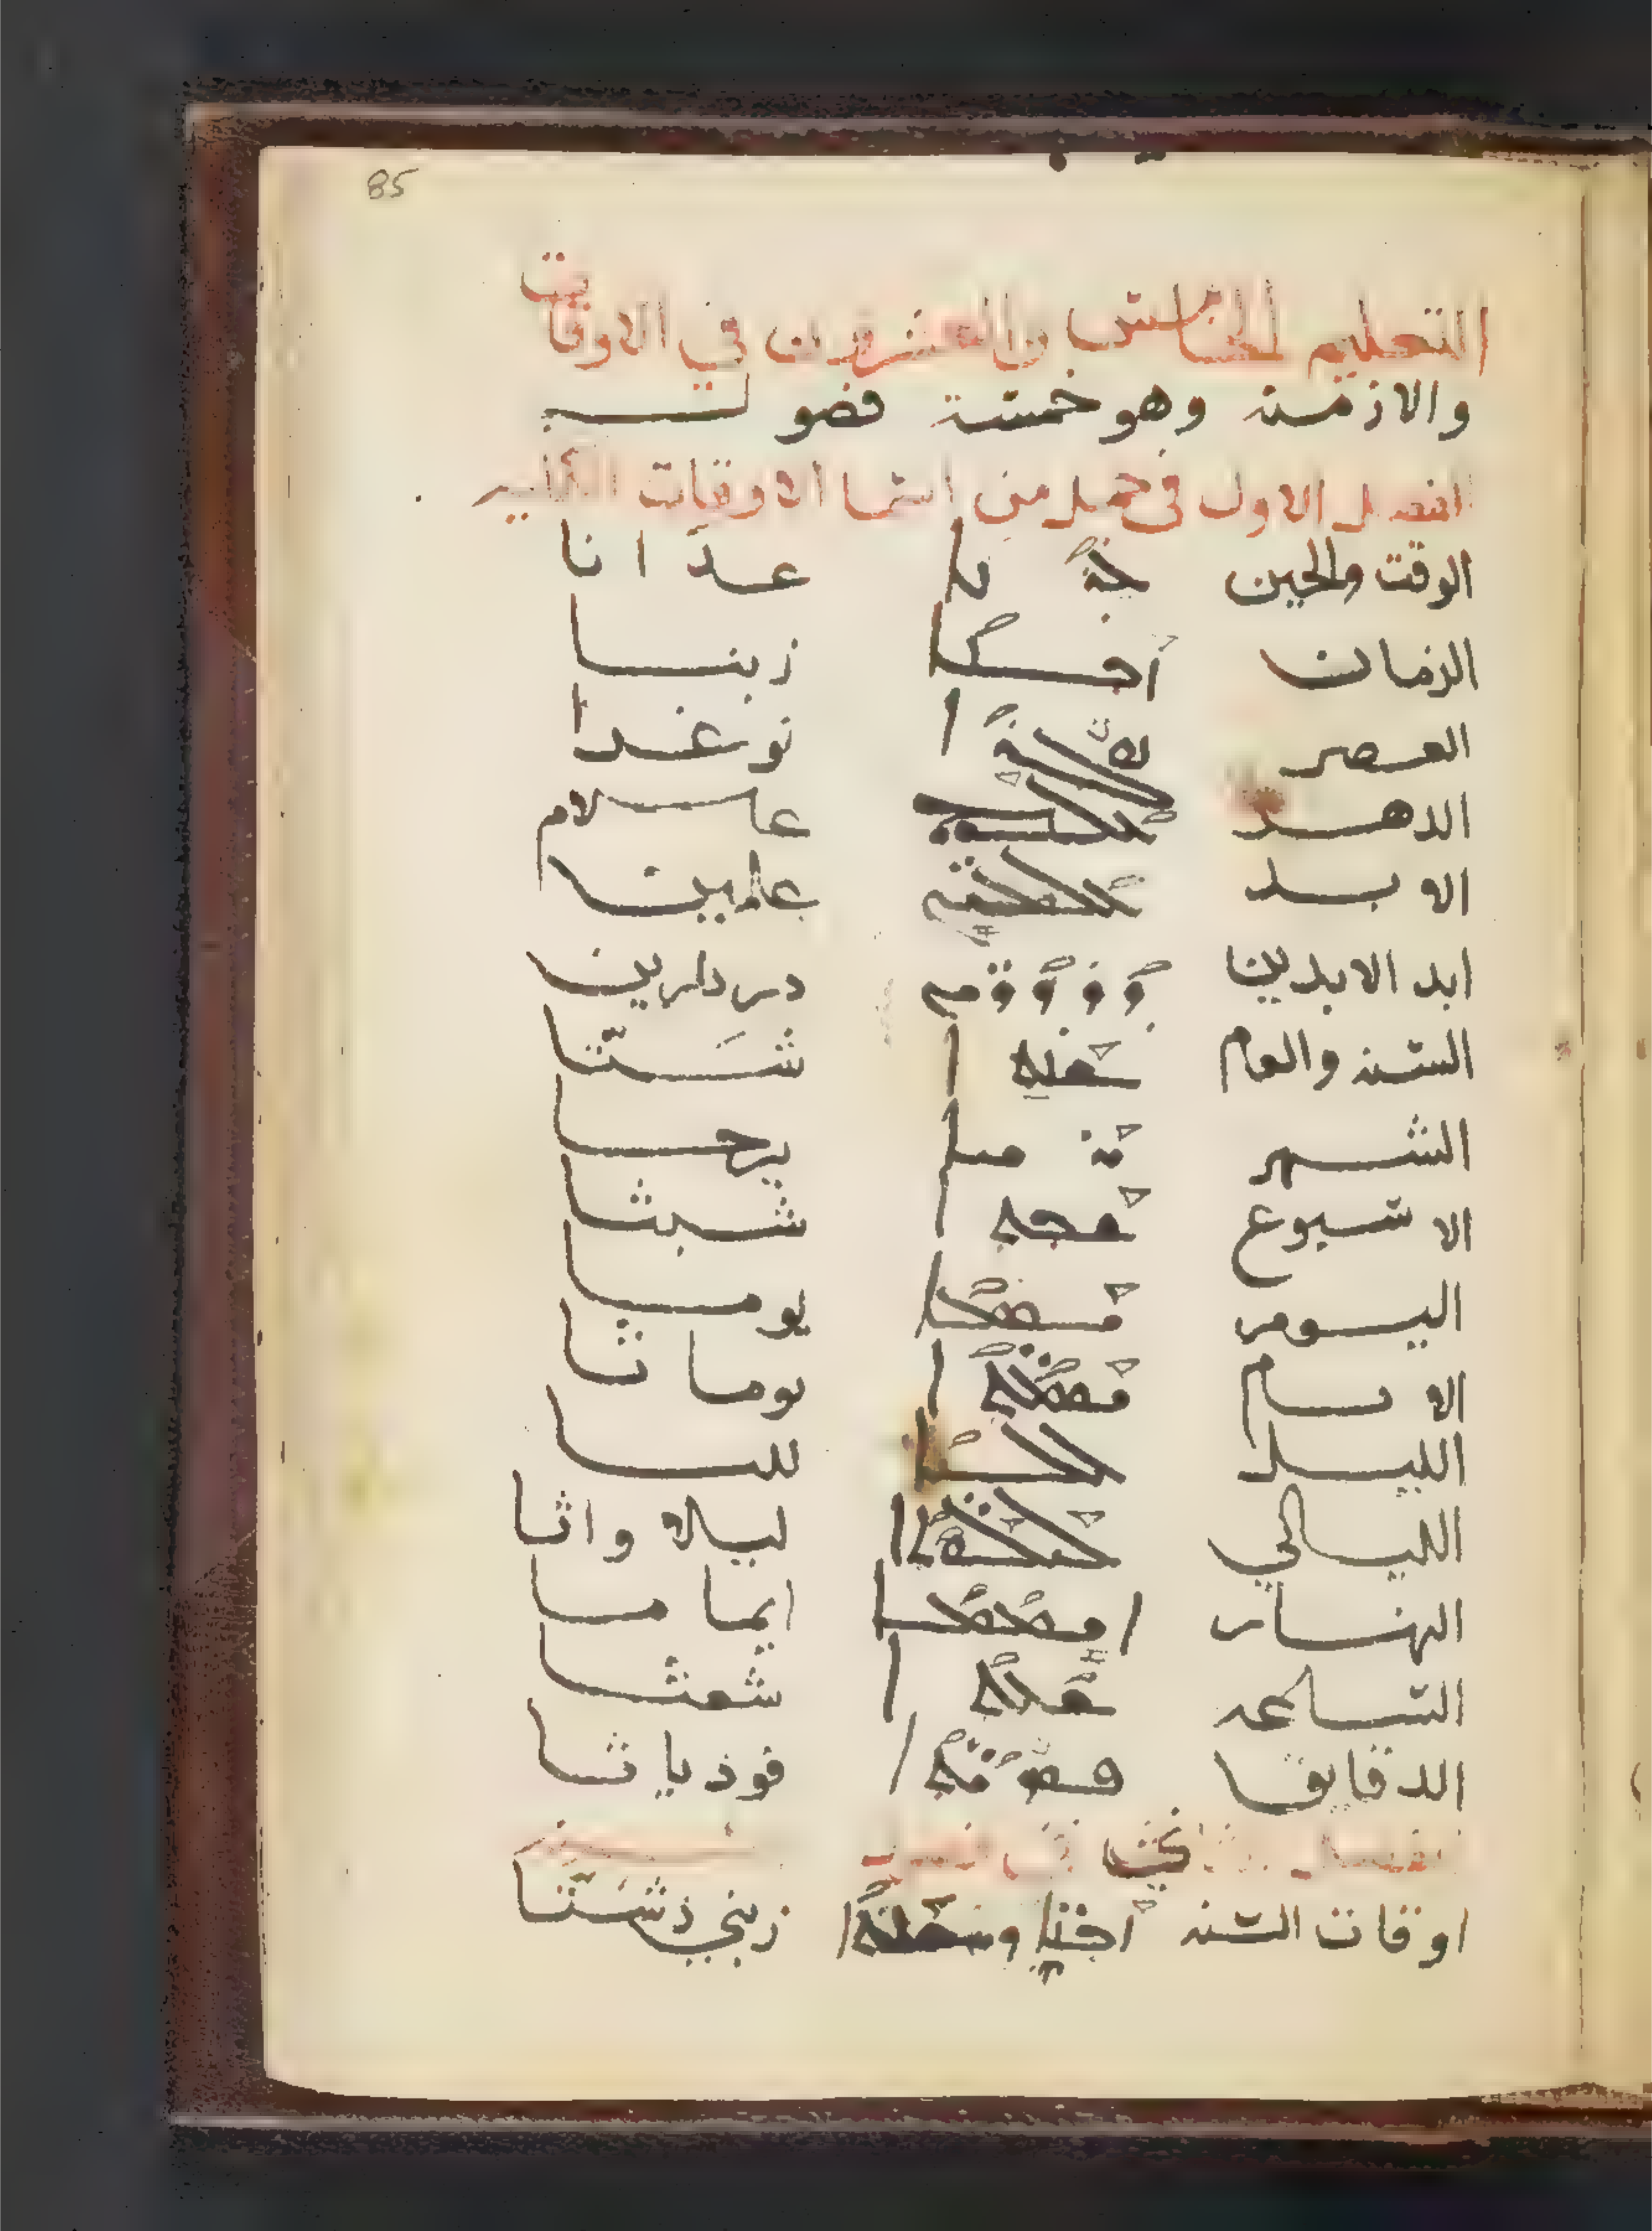 85
التعليم الخامس والعشرون في الاوقات
والازمنه وهو خمسة فصول
الفصل الاول في جمل من اسما الاوقات
الوقت والحين ܥܕܢܐ عدَّانا
الزمان ܙܒܢܐ زبنا
العصر نوغدا
الدهر ܥܠܡ عالام
الابد ܥܠܡܝܢ علمين
ابد الابدين ܕܪܕܪܝܢ دردارين
السنه والعام ܫܢܬܐ شَنّتا
الشهر ܝܪܚܐ يرحا
الاسبوع ܫܒܬܐ شبثا
اليوم ܝܘܡܐ يوما
الايام ܝܘܡܬܐ يوماثا
الليل ܠܠܝܐ لليا
الليالي ܠܝܠܘܬܐ ليلاواثا
النهار ܐܝܡܡܐ ايماما
الساعه ܫܥܬܐ شعثا
الدقايق قوذياثا
الفصل الثاني في
اوقات السنه ܙܒܢܝ ܕܫܢܬܐ زبني ذشَنّتا